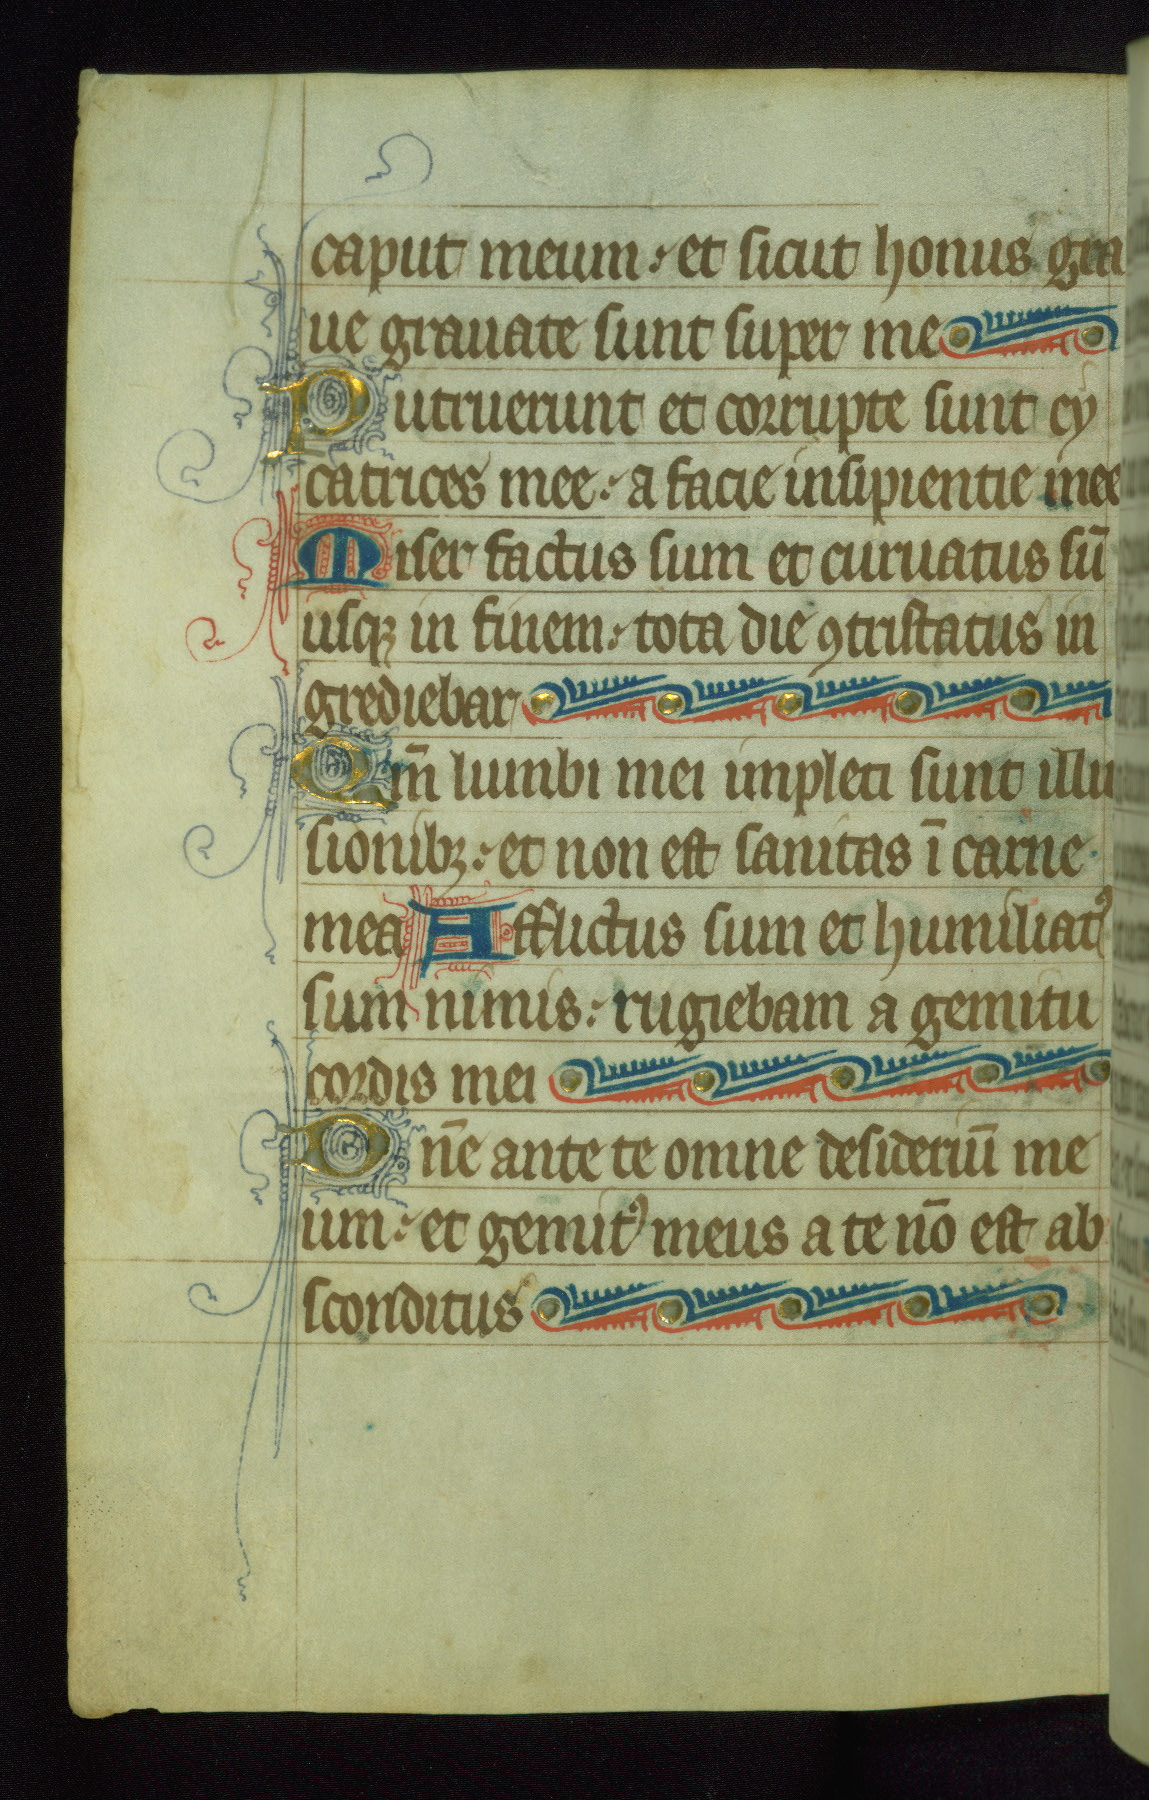 caput meum : et sicut honus gra
ue grauate sunt super me
Putruerunt et corrupte sunt cy
catrices mee : a facie insipientie mee
Miser factus sum et curuatus sū
usqꝫ in finem : tota die ꝯtristatus in
grediebar
Qm̄ lumbi mei impleti sunt illu
sionibꝫ : et non est sanitas ī carne
mea Afflictus sum et humiliatꝰ
sum nimis : rugiebam a gemitu
cordis mei
Dn̄e ante te omne desideriū me
um : et gemitꝰ meus a te nō est ab
sconditus